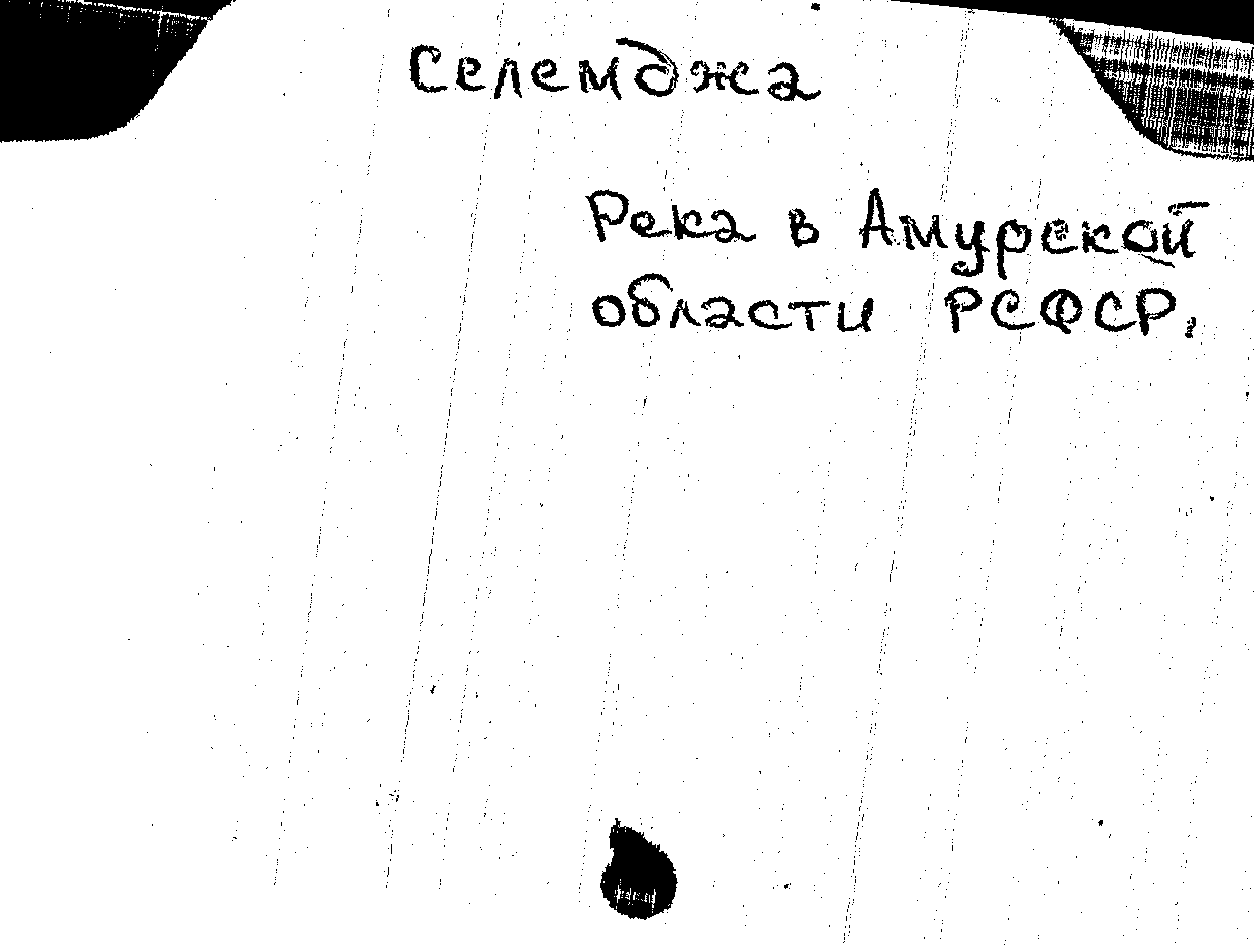 Селемджа
Река в Амурской
области РСФСР.